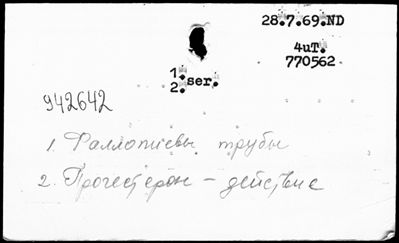 28.7.69.ND
4uT.
770562
1. ser.
2.
942642
1. Фаллопиевы трубы
2. Прогестерон - действие